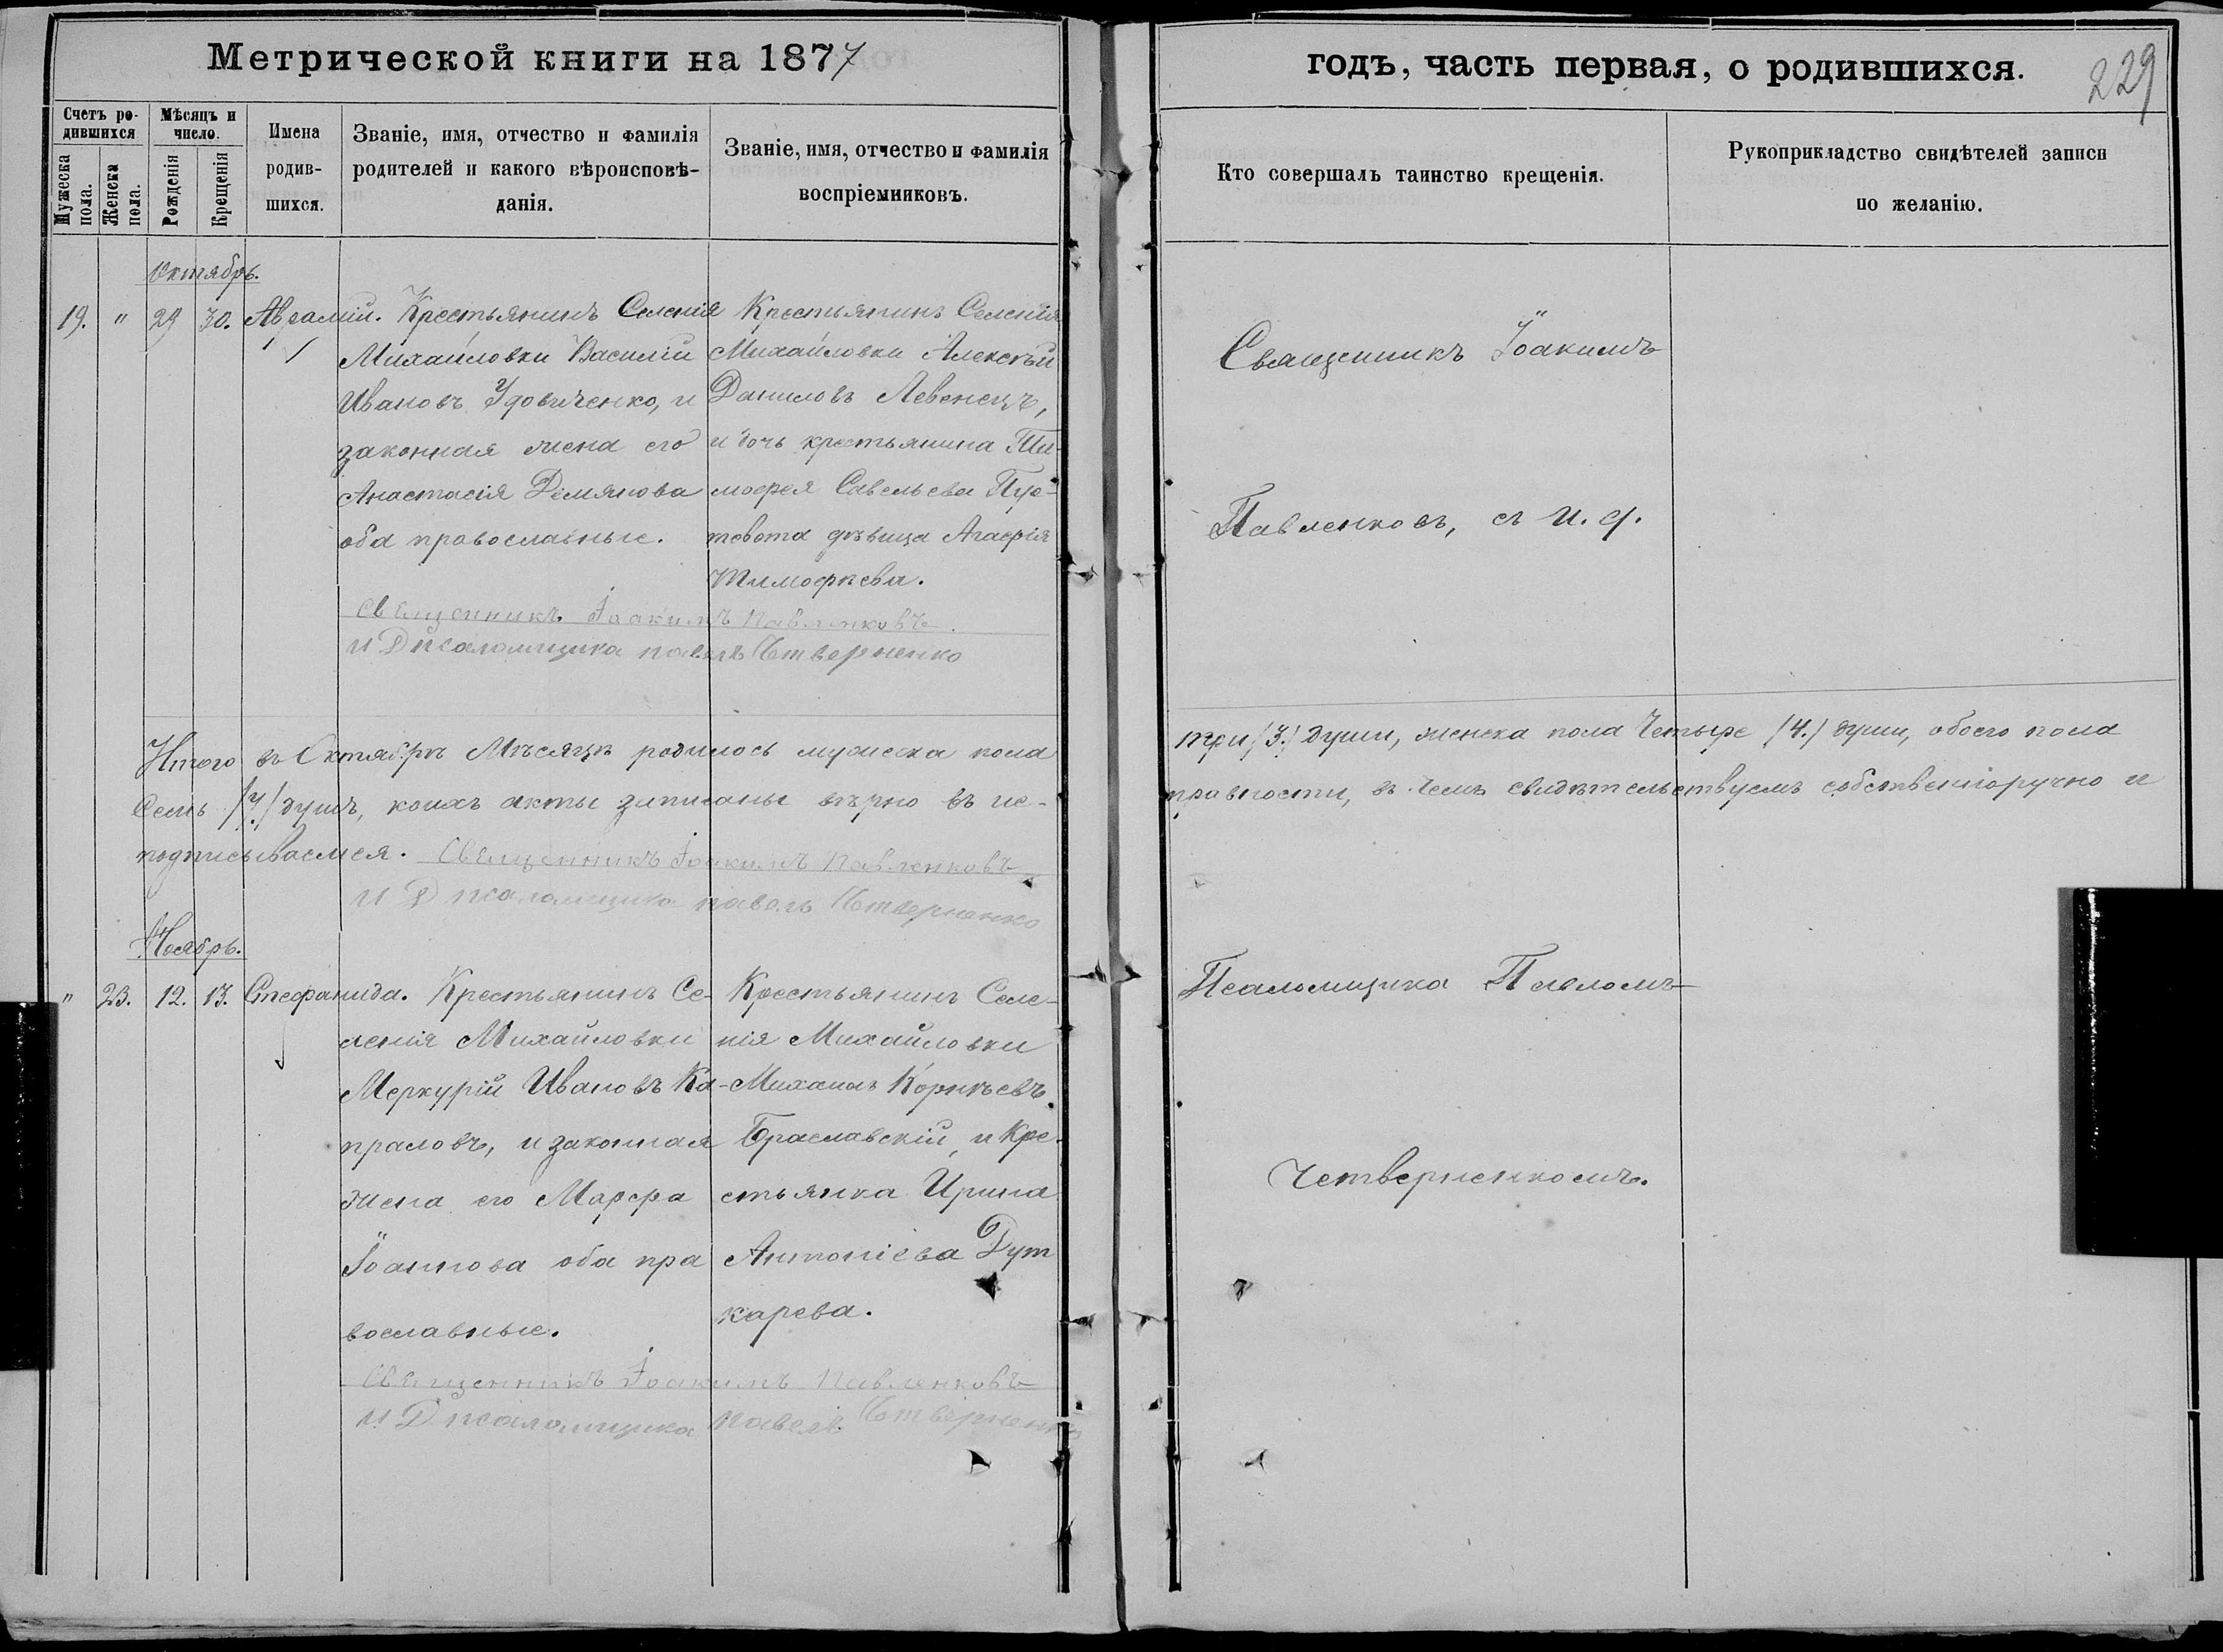 Метрической книги на 1877
годъ, часть первая, о родившихся.
229
Счетъ ро-
дившихся
Мужеска
пола.
Женска
пола.
Мѣсяцъ и
число.
Рожденія
Крещенія
Имена
родив-
шихся.
Званіе, имя, отчество и фамилія
родителей и какого вѣроисповѣ-
данія.
Званіе, имя, отчество и фамилія
воспріемниковъ.
Кто совершалъ таинство крещенія.
Рукоприкладство свидѣтелей записи
по желанію.
Октябрь.
19. " 29 30. Аврамій.
Крестьянинъ Селенія
Михайловки Василій
Ивановъ Удовиченко, и
законная жена его
Анастасія Демянова
оба православные.
Крестьянинъ Селенія
Михайловки Алексѣй
Даниловъ Левенецъ,
и дочь крестьянина Ти-
мофея Савельева Пус-
товота дѣвица Агафія
Тимофѣева.
Священникъ Іоакимъ
Павленковъ, съ и. д.
Священникъ Іоакимъ Павленковъ.
И Д псаломщика павелъ Четверненко
Итого въ Октябрѣ Мѣсяцѣ родилось мужеска пола
три /3./ души, женска пола Четыре /4./ души, обоего пола
Семь /7./ душъ, коихъ акты записаны вѣрно въ ис-
правности, въ чемъ свидѣтельствуемъ собственноручно и
подписываемся. Священникъ Іоакимъ Павленковъ
И Д псаломщика павелъ Четверненко
Ноябрь.
" 23. 12. 13. Стефанида.
Крестьянинъ Се-
ленія Михайловки
Меркурій Ивановъ Ка-
праловъ, и законная
жена его Марфа
Іоаннова оба пра
вославные.
Крестьянинъ Селе-
нія Михайловки
Михаилъ Корнѣевъ
Браславскій, и Кре-
стьянка Ирина
Антоніева Дут
карева.
Псаломщика Павломъ
Четверненкомъ.
Священникъ Іоакимъ Павленковъ
И Д псаломщика Павелъ Четверненко